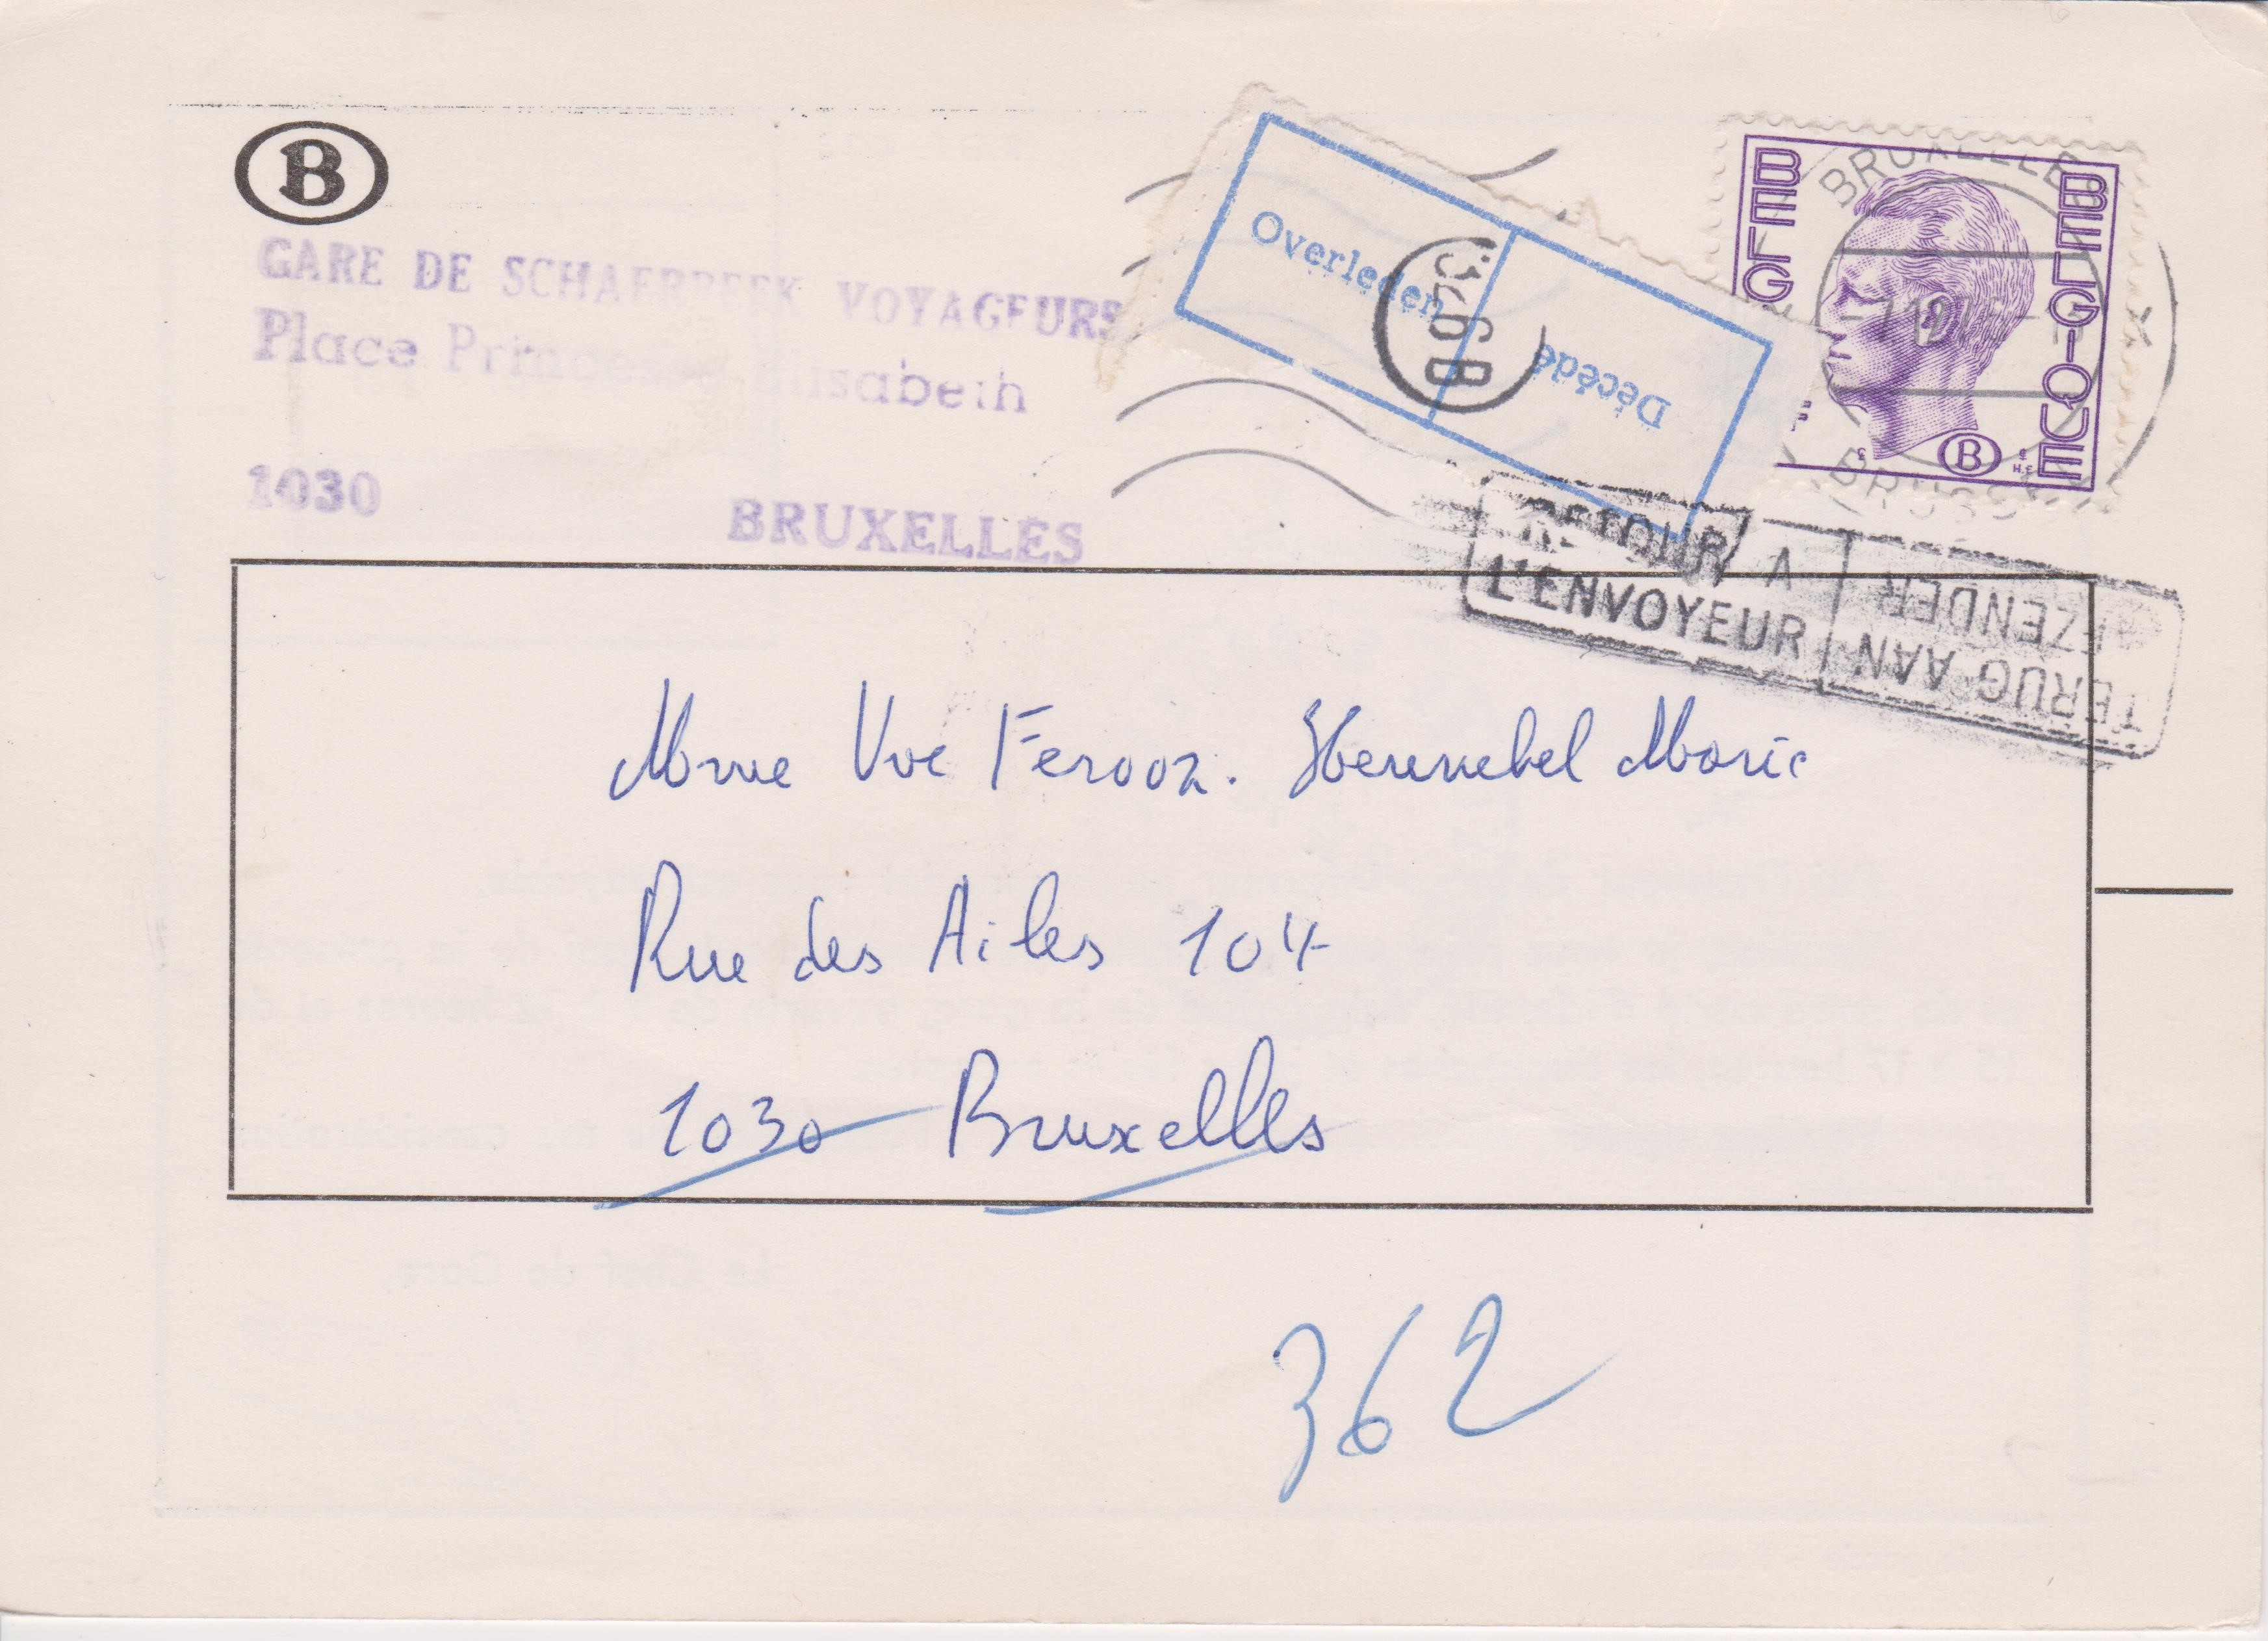 B
GARE DE SCHAERBEEK VOYAGEURS
Place Princesse Elisabeth
1030 BRUXELLES
Overleden
Décédé
BELG
BELGIQUE
B
BRUXELLES
RETOUR A
L'ENVOYEUR
AFZENDER
TERUG AAN
Mme Vve Ferooz. Hennebel Marie
Rue des Ailes 104
1030 Bruxelles
362